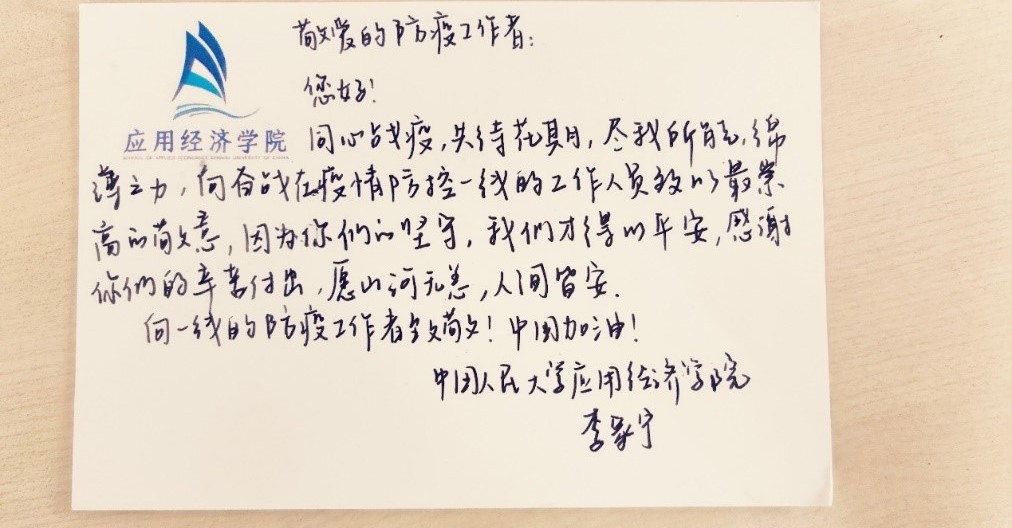 敬爱的防疫工作者：
您好！
应用经济学院
SCHOOL OF APPLIED ECONOMICS RENMIN UNIVERSITY OF CHINA
同心战疫，共待花期，尽我所能，绵
薄之力，向奋战在疫情防控一线的工作人员致以最崇
高的敬意，因为你们的坚守，我们才得以平安，感谢
你们的辛苦付出，愿山河无恙，人间皆安．
向一线的防疫工作者致敬！中国加油！
中国人民大学应用经济学院
李家宁